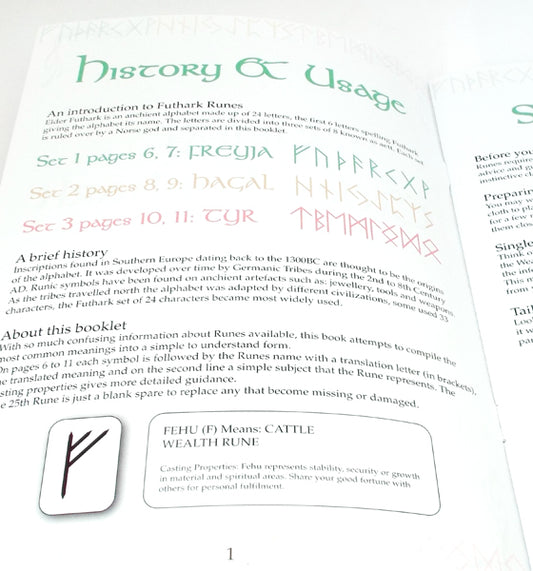 History & Usage
An introduction to Futhark Runes
Elder Futhark is an anchient alphabet made up of 24 letters, the first 6 letters spelling Futhark
giving the alphabet its name. The letters are divided into three sets of 8 known as aett. Each set
is ruled over by a Norse god and separated in this booklet.
Set 1 pages 6, 7: FREYJA ᚠ ᚢ ᚦ ᚨ ᚱ ᚲ ᚷ ᚹ
Set 2 pages 8, 9: HAGAL ᚺ ᚾ ᛁ ᛃ ᛇ ᛈ ᛉ ᛊ
Set 3 pages 10, 11: TYR ᛏ ᛒ ᛖ ᛗ ᛚ ᛜ ᛞ ᛟ
A brief history
Inscriptions found in Southern Europe dating back to the 1300BC are thought to be the origins
of the alphabet. It was developed over time by Germanic Tribes during the 2nd to 8th Century
AD. Runic symbols have been found on anchient artefacts such as: jewellery, tools and weapons.
As the tribes travelled north the alphabet was adapted by different civilizations, some used 33
characters, the Futhark set of 24 characters became most widely used.
About this booklet
With so much confusing information about Runes available, this book attempts to compile the
most common meanings into a simple to understand form.
On pages 6 to 11 each symbol is followed by the Runes name with a translation letter (in brackets),
the translated meaning and on the second line a simple subject that the Rune represents. The
casting properties gives more detailed guidance.
The 25th Rune is just a blank spare to replace any that become missing or damaged.
ᚠ
FEHU (F) Means: CATTLE
WEALTH RUNE
Casting Properties: Fehu represents stability, security or growth
in material and spiritual areas. Share your good fortune with
others for personal fulfilment.
1
S
Before you
Runes require
advice and g
instinctive c
Preparin
You may w
cloth to pla
for a few m
them clos
Single
Think o
the Wea
the inf
This m
from
Tail
Look
it w